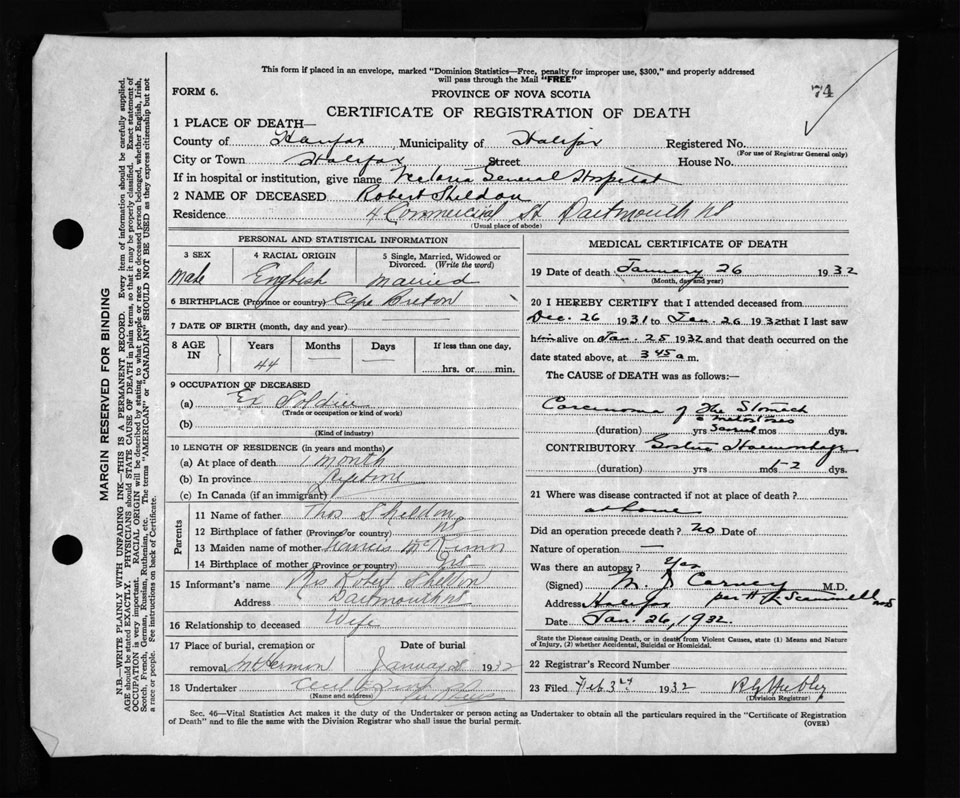 This form if placed in an envelope, marked "Dominion Statistics—Free, penalty for improper use, $300," and properly addressed
will pass through the Mail "FREE"
74
FORM 6.
PROVINCE OF NOVA SCOTIA
CERTIFICATE OF REGISTRATION OF DEATH
1 PLACE OF DEATH—
County of Halifax, Municipality of Halifax Registered No.
(For use of Registrar General only)
City or Town Halifax Street House No.
If in hospital or institution, give name Victoria General Hospital
2 NAME OF DECEASED Robert Sheldon
Residence 4 Commercial St. Dartmouth NS
(Usual place of abode)
PERSONAL AND STATISTICAL INFORMATION
3 SEX 4 RACIAL ORIGIN 5 Single, Married, Widowed or
Divorced. (Write the word)
Male English Married
6 BIRTHPLACE (Province or country) Cape Breton
7 DATE OF BIRTH (month, day and year) —
8 AGE IN Years Months Days If less than one day,
44 — — hrs. or min.
9 OCCUPATION OF DECEASED
(a) Ex Soldier
(Trade or occupation or kind of work)
(b)
(Kind of industry)
10 LENGTH OF RESIDENCE (in years and months)
(a) At place of death 1 month
(b) In province Lifetime
(c) In Canada (if an immigrant)
Parents
11 Name of father Thos Sheldon
12 Birthplace of father (Province or country) NS
13 Maiden name of mother Frances
14 Birthplace of mother (Province or country) NS
15 Informant's name Mrs Robert Sheldon
Address Dartmouth NS
16 Relationship to deceased Wife
17 Place of burial, cremation or Date of burial
removal Mt Hermon January 28 1932
18 Undertaker
(Name and address)
MEDICAL CERTIFICATE OF DEATH
19 Date of death January 26 1932
(Month, day and year)
20 I HEREBY CERTIFY that I attended deceased from
Dec. 26 1931 to Jan. 26 1932 that I last saw
him alive on Jan. 25 1932 and that death occurred on the
date stated above, at 3 45 a m.
The CAUSE of DEATH was as follows:—
Carcinoma of the Stomach
metastases
(duration) yrs several mos dys.
CONTRIBUTORY Gastric Haemorrhage
(duration) yrs mos 1-2 dys.
21 Where was disease contracted if not at place of death?
at home
Did an operation precede death? No Date of
Nature of operation —
Was there an autopsy? Yes
(Signed) M. J Carney M.D.
per H K Scammell
Address Halifax
Date Jan. 26, 1932.
State the Disease causing Death, or in death from Violent Causes, state (1) Means and Nature
of Injury, (2) whether Accidental, Suicidal or Homicidal.
22 Registrar's Record Number
23 Filed Feb 3rd 1932
(Division Registrar)
Sec. 46—Vital Statistics Act makes it the duty of the Undertaker or person acting as Undertaker to obtain all the particulars required in the "Certificate of Registration
of Death" and to file the same with the Division Registrar who shall issue the burial permit.
(OVER)
MARGIN RESERVED FOR BINDING
N.B.—WRITE PLAINLY WITH UNFADING INK—THIS IS A PERMANENT RECORD. Every item of information should be carefully supplied.
AGE should be stated EXACTLY. PHYSICIANS should STATE CAUSE OF DEATH in plain terms, so that it may be properly classified. Exact statement of
OCCUPATION is very important. RACIAL ORIGIN will be described by stating to what people or race the deceased person belonged, whether English, Irish,
Scotch, French, German, Russian, Ruthenian, etc. The terms "AMERICAN" or "CANADIAN" SHOULD NOT BE USED as they express citizenship but not
a race or people. See instructions on back of Certificate.